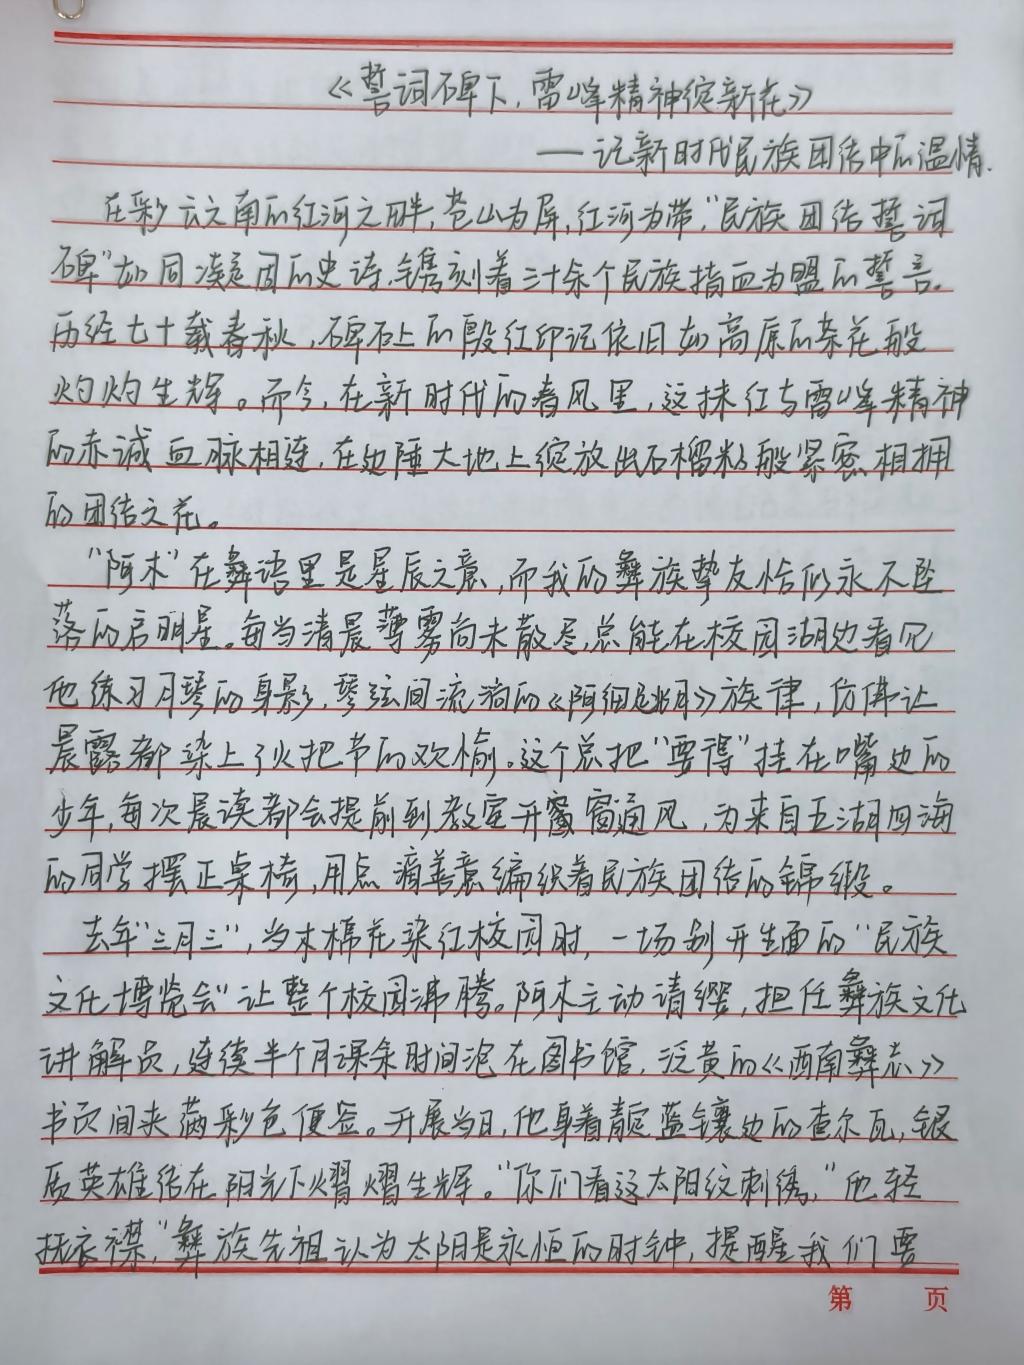 《誓词碑下,雷峰精神绽新花》
——记新时代民族团结中的温情.
在彩云之南的红河之畔,苍山为屏,红河为带,"民族团结誓词
碑"如同凝固的史诗,镌刻着三十余个民族指血为盟的誓言。
历经七十载春秋,碑石上的殷红印记依旧如高原的茶花般
灼灼生辉。而今,在新时代的春风里,这抹红与雷峰精神
的赤诚血脉相连,在边陲大地上绽放出石榴籽般紧密相拥
的团结之花。
"阿木"在彝语里是星辰之意,而我的彝族挚友恰似永不坠
落的启明星。每当清晨薄雾尚未散尽,总能在校园湖边看见
他练习月琴的身影,琴弦间流淌的《阿细跳月》旋律,仿佛让
晨露都染上了火把节的欢愉。这个总把"要得"挂在嘴边的
少年,每次晨读都会提前到教室开窗通风,为来自五湖四海
的同学摆正桌椅,用点滴善意编织着民族团结的锦缎。
去年"三月三",当木棉花染红校园时,一场别开生面的"民族
文化博览会"让整个校园沸腾。阿木主动请缨,担任彝族文化
讲解员,连续半个月课余时间泡在图书馆,泛黄的《西南彝志》
书页间夹满彩色便签。开展当日,他身着靛蓝镶边的查尔瓦,银
质英雄结在阳光下熠熠生辉。"你们看这太阳纹刺绣,"他轻
抚衣襟,"彝族先祖认为太阳是永恒的时钟,提醒我们要
第 页